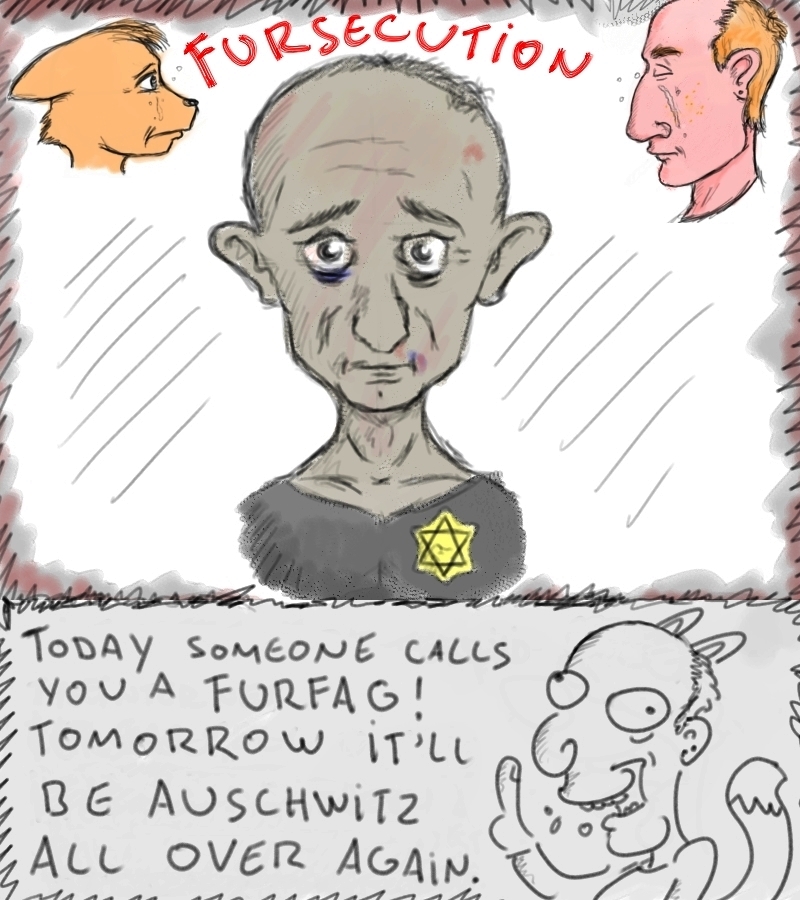 FURSECUTION
TODAY SOMEONE CALLS
YOU A FURFAG!
TOMORROW IT'LL
BE AUSCHWITZ
ALL OVER AGAIN.